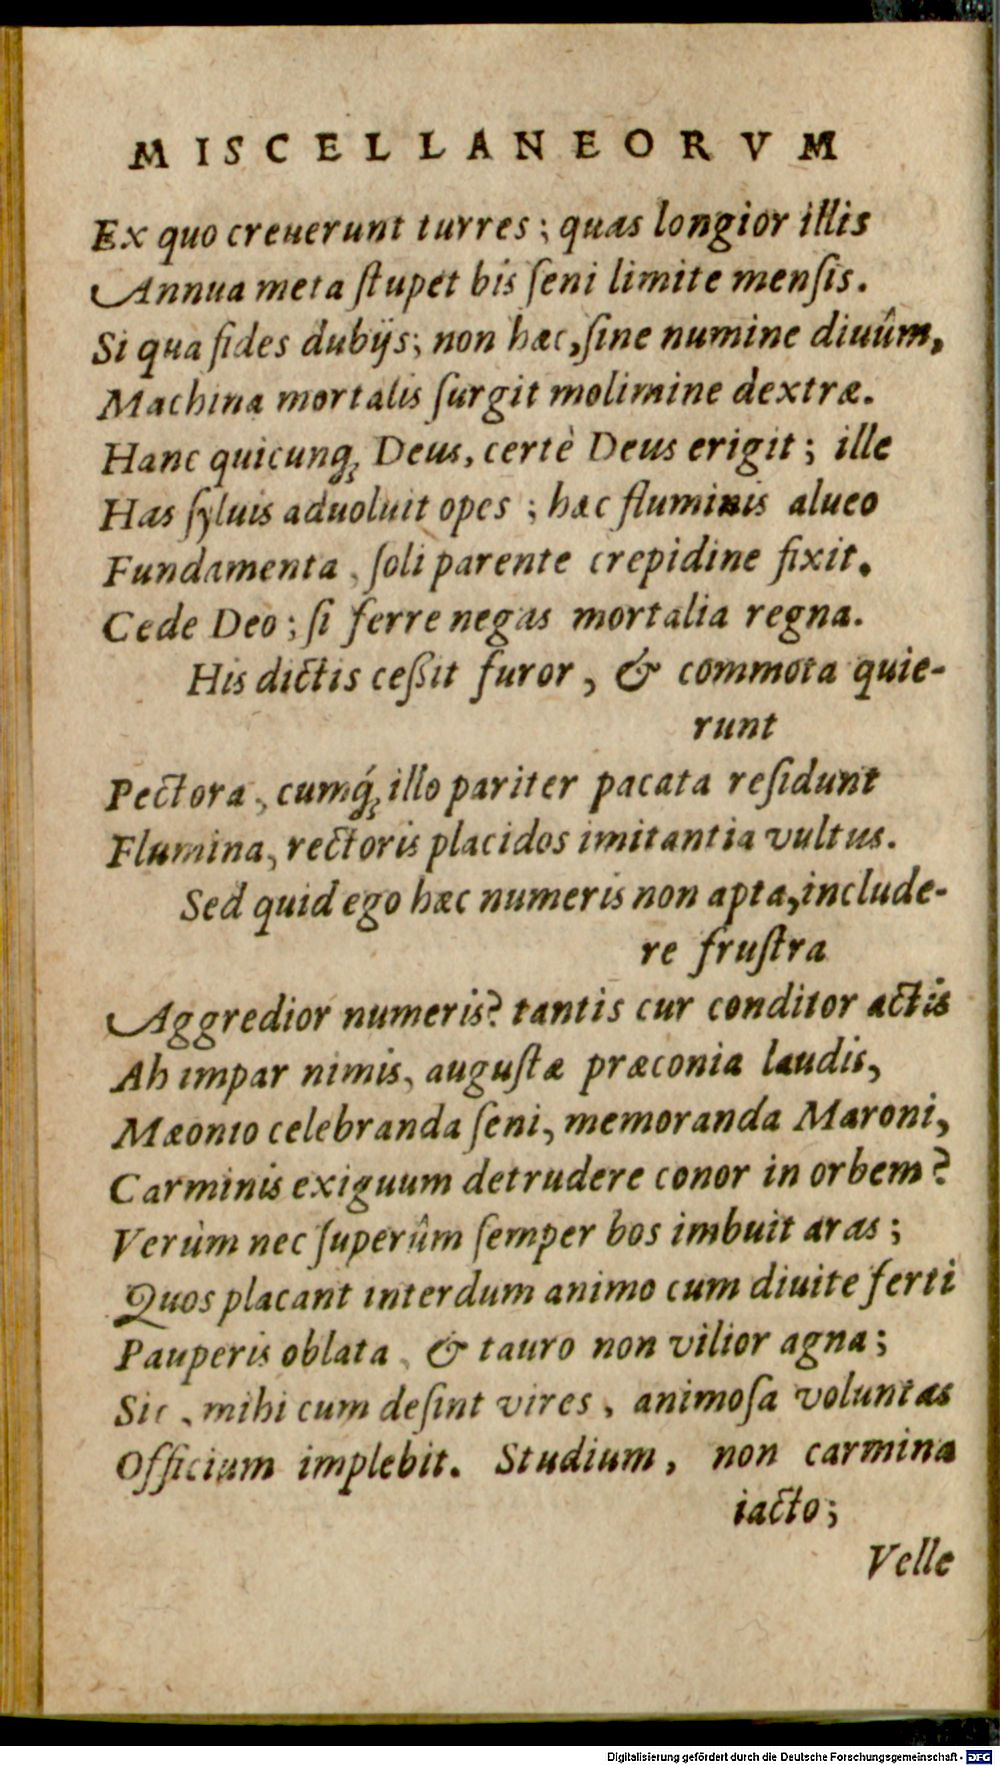 MISCELLANEORVM
Ex quo creuerunt turres; quas longior illis
Annua meta ſtupet bis ſeni limite menſis.
Si qua fides dubijs; non hæc, ſine numine diuûm,
Machina mortalis ſurgit molimine dextræ.
Hanc quicunq; Deus, certè Deus erigit; ille
Has ſyluis aduoluit opes; hæc fluminis alueo
Fundamenta, ſoli parente crepidine fixit.
Cede Deo; ſi ferre negas mortalia regna.
His dictis ceßit furor, & commota quie-
runt
Pectora, cumq́; illo pariter pacata reſidunt
Flumina, rectoris placidos imitantia vultus.
Sed quid ego hæc numeris non apta, include-
re fruſtra
Aggredior numeris? tantis cur conditor actis
Ah impar nimis, auguſtæ præconia laudis,
Mæonio celebranda ſeni, memoranda Maroni,
Carminis exiguum detrudere conor in orbem?
Verùm nec ſuperûm ſemper bos imbuit aras;
Quos placant interdum animo cum diuite ferti
Pauperis oblata, & tauro non vilior agna;
Sic, mihi cum deſint vires, animoſa voluntas
Officium implebit. Studium, non carmina
iacto;
Velle
Digitalisierung gefördert durch die Deutsche Forschungsgemeinschaft - DFG